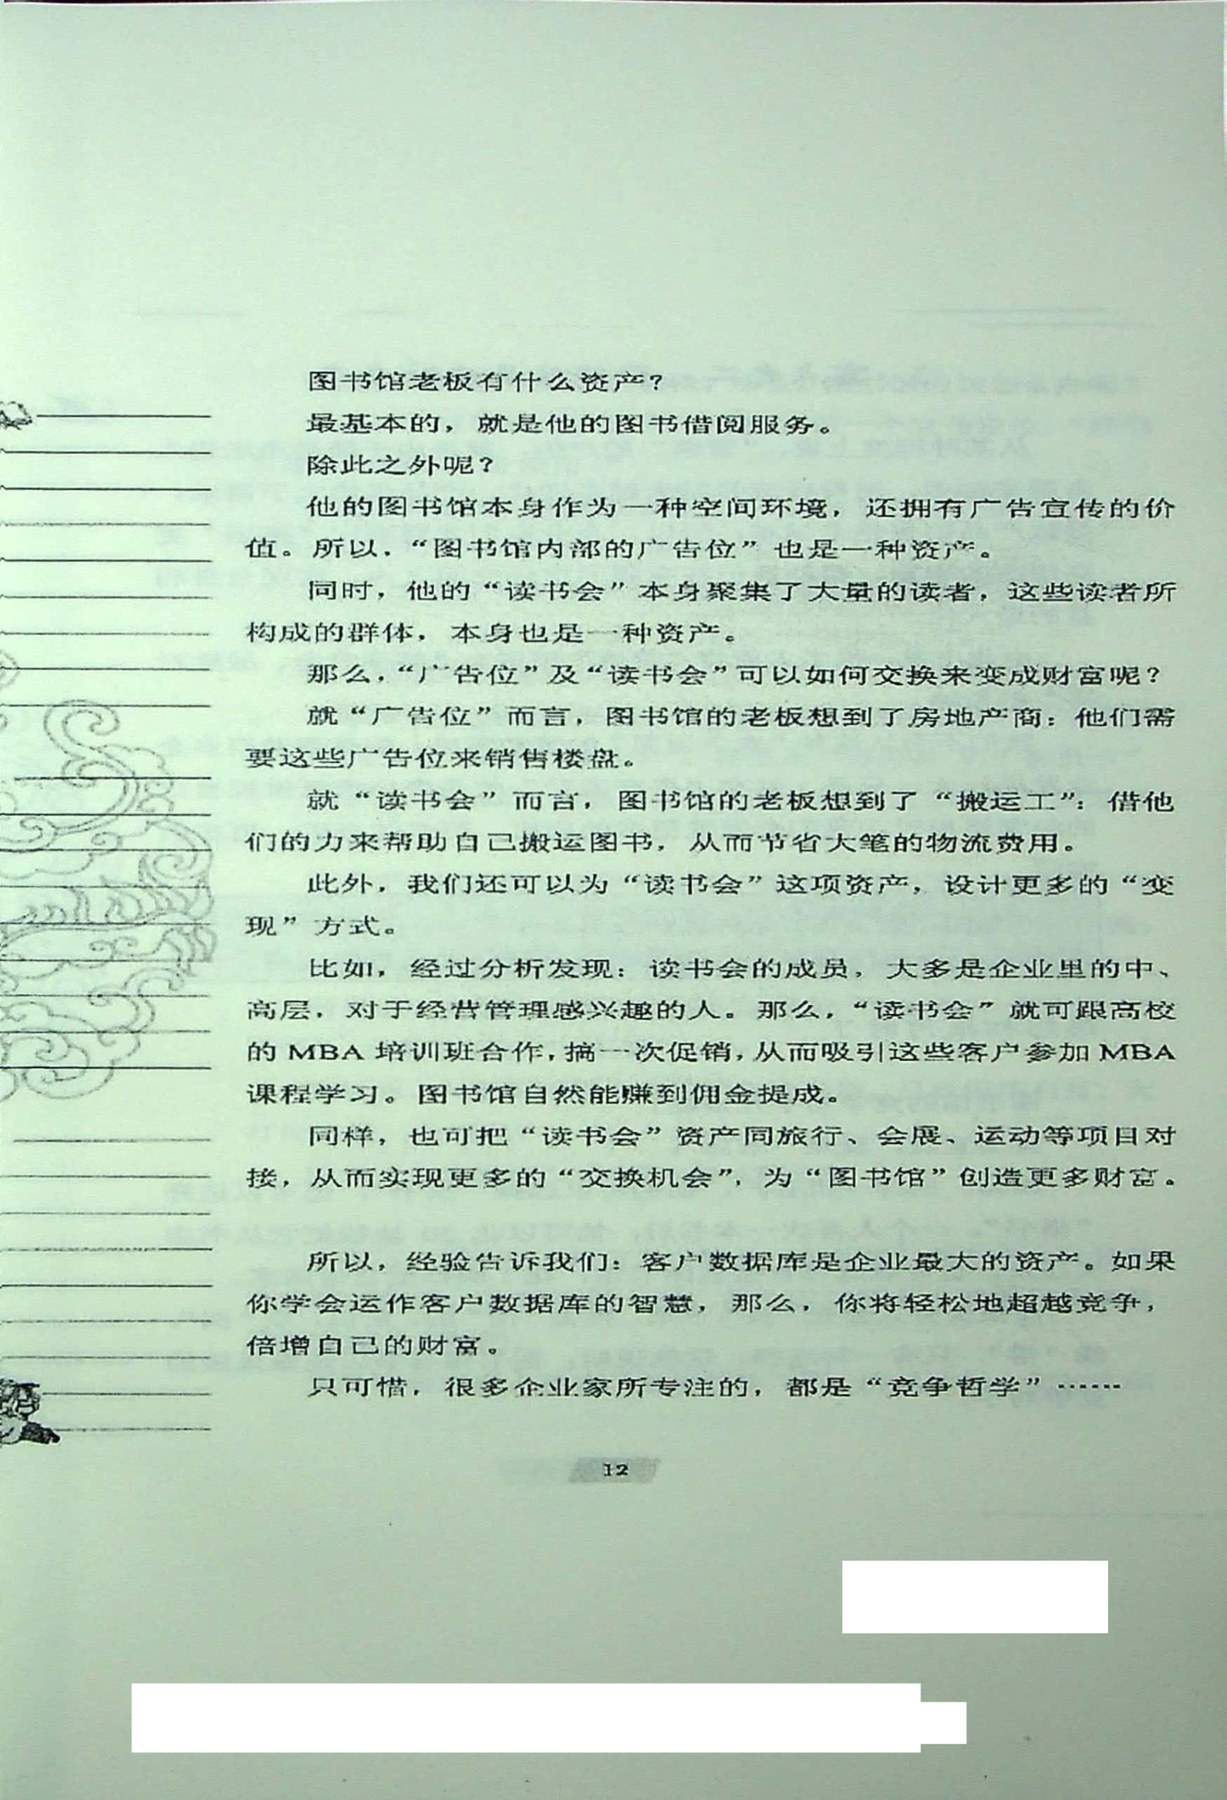 图书馆老板有什么资产？
最基本的，就是他的图书借阅服务。
除此之外呢？
他的图书馆本身作为一种空间环境，还拥有广告宣传的价
值。所以，“图书馆内部的广告位”也是一种资产。
同时，他的“读书会”本身聚集了大量的读者，这些读者所
构成的群体，本身也是一种资产。
那么，“广告位”及“读书会”可以如何交换来变成财富呢？
就“广告位”而言，图书馆的老板想到了房地产商：他们需
要这些广告位来销售楼盘。
就“读书会”而言，图书馆的老板想到了“搬运工”：借他
们的力来帮助自己搬运图书，从而节省大笔的物流费用。
此外，我们还可以为“读书会”这项资产，设计更多的“变
现”方式。
比如，经过分析发现：读书会的成员，大多是企业里的中、
高层，对于经营管理感兴趣的人。那么，“读书会”就可跟高校
的 MBA 培训班合作，搞一次促销，从而吸引这些客户参加 MBA
课程学习。图书馆自然能赚到佣金提成。
同样，也可把“读书会”资产同旅行、会展、运动等项目对
接，从而实现更多的“交换机会”，为“图书馆”创造更多财富。
所以，经验告诉我们：客户数据库是企业最大的资产。如果
你学会运作客户数据库的智慧，那么，你将轻松地超越竞争，
倍增自己的财富。
只可惜，很多企业家所专注的，都是“竞争哲学”……
12